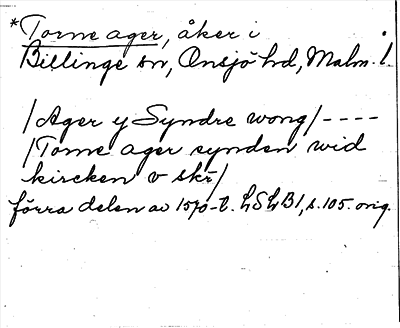 *Torne ager, åker i
Billinge sn, Onsjö hd, Malm. l.
/Ager y Syndre wong/----
/Torne ager synden wid
kircken v skr/
förra delen av 1570-t. LSLB1, s. 105. orig.